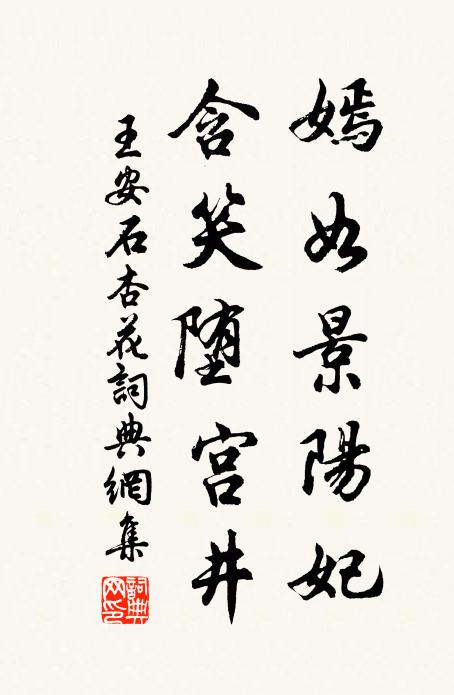 嫣如景陽妃
含笑堕宮井
王安石杏花詞典網集
詞典網印